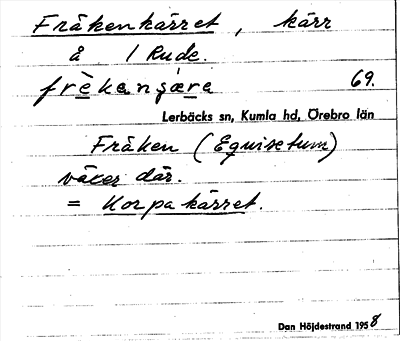 Fräkenkärret, kärr
å 1 Rude.
frèkançǽre 69.
Lerbäcks sn, Kumla hd, Örebro län
Fräken (Equisetum)
växer där.
= Korpakärret.
Dan Höjdestrand 1958